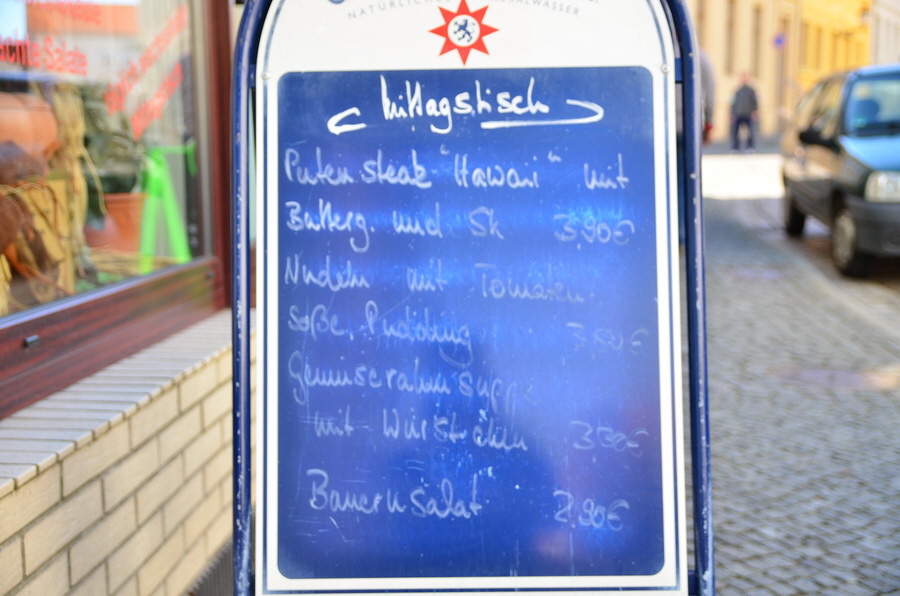 NATÜRLICHES MINERALWASSER
Mittagstisch
Putensteak "Hawaii" mit
Butterg. und Sk 3,90€
Nudeln mit Tomaten-
soße, Pudding 3,50€
Gemüserahmsuppe
mit Würstchen 3,50€
Bauernsalat 2,90€